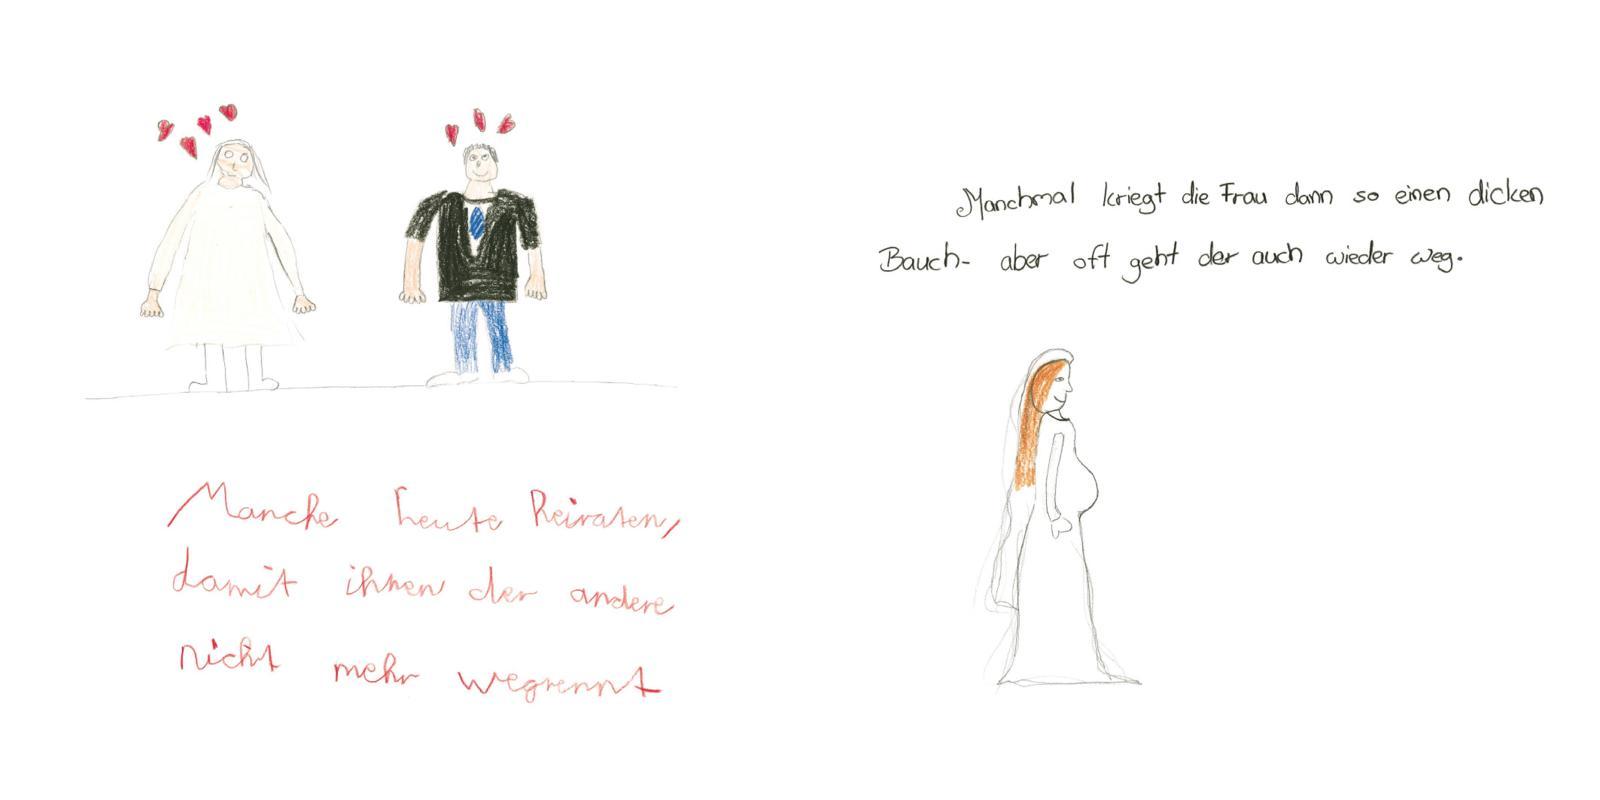 Manche heute Heiraten,
damit ihnen der andere
nicht mehr wegrennt
Manchmal kriegt die Frau dann so einen dicken
Bauch- aber oft geht der auch wieder weg.